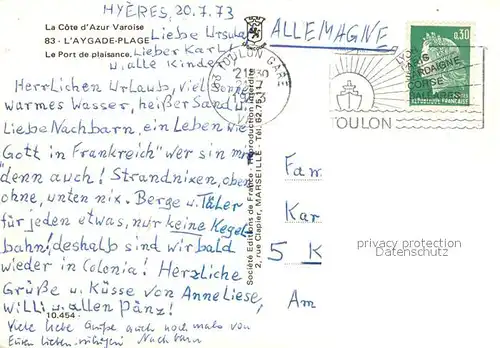 HYÈRES, 20.7.73
La Côte d'Azur Varoise
83 - L'AYGADE-PLAGE
Le Port de plaisance.
ALLEMAGNE
Liebe Ursula
Lieber Karl!
u. alle Kinder
Herrlichen Urlaub, viel Sonne
warmes Wasser, heißer Sand!
Liebe Nachbarn, ein Leben wie
Gott in Frankreich" wer sin mer
denn auch! Strandnixen, oben
ohne, unten nix. Berge u. Täler
für jeden etwas, nur keine Kegel
bahn! deshalb sind wir bald
wieder in Colonia! Herzliche
Grüße u. Küsse von Anneliese,
Willi u. allen Pänz!
10.454
Viele liebe Grüße auch noch mals von
Euren lieben ruhigen Nachbarn
Société Editions de France - Reproduction interdite
2, rue Clapier, MARSEILLE - Tél. 62.75.11
TOULON GARE
0,30
SARDAIGNE
CORSE
BALEARES
REPUBLIQUE FRANÇAISE
TOULON
Fam
Kar
5 K
Am
privacy protection
Datenschutz